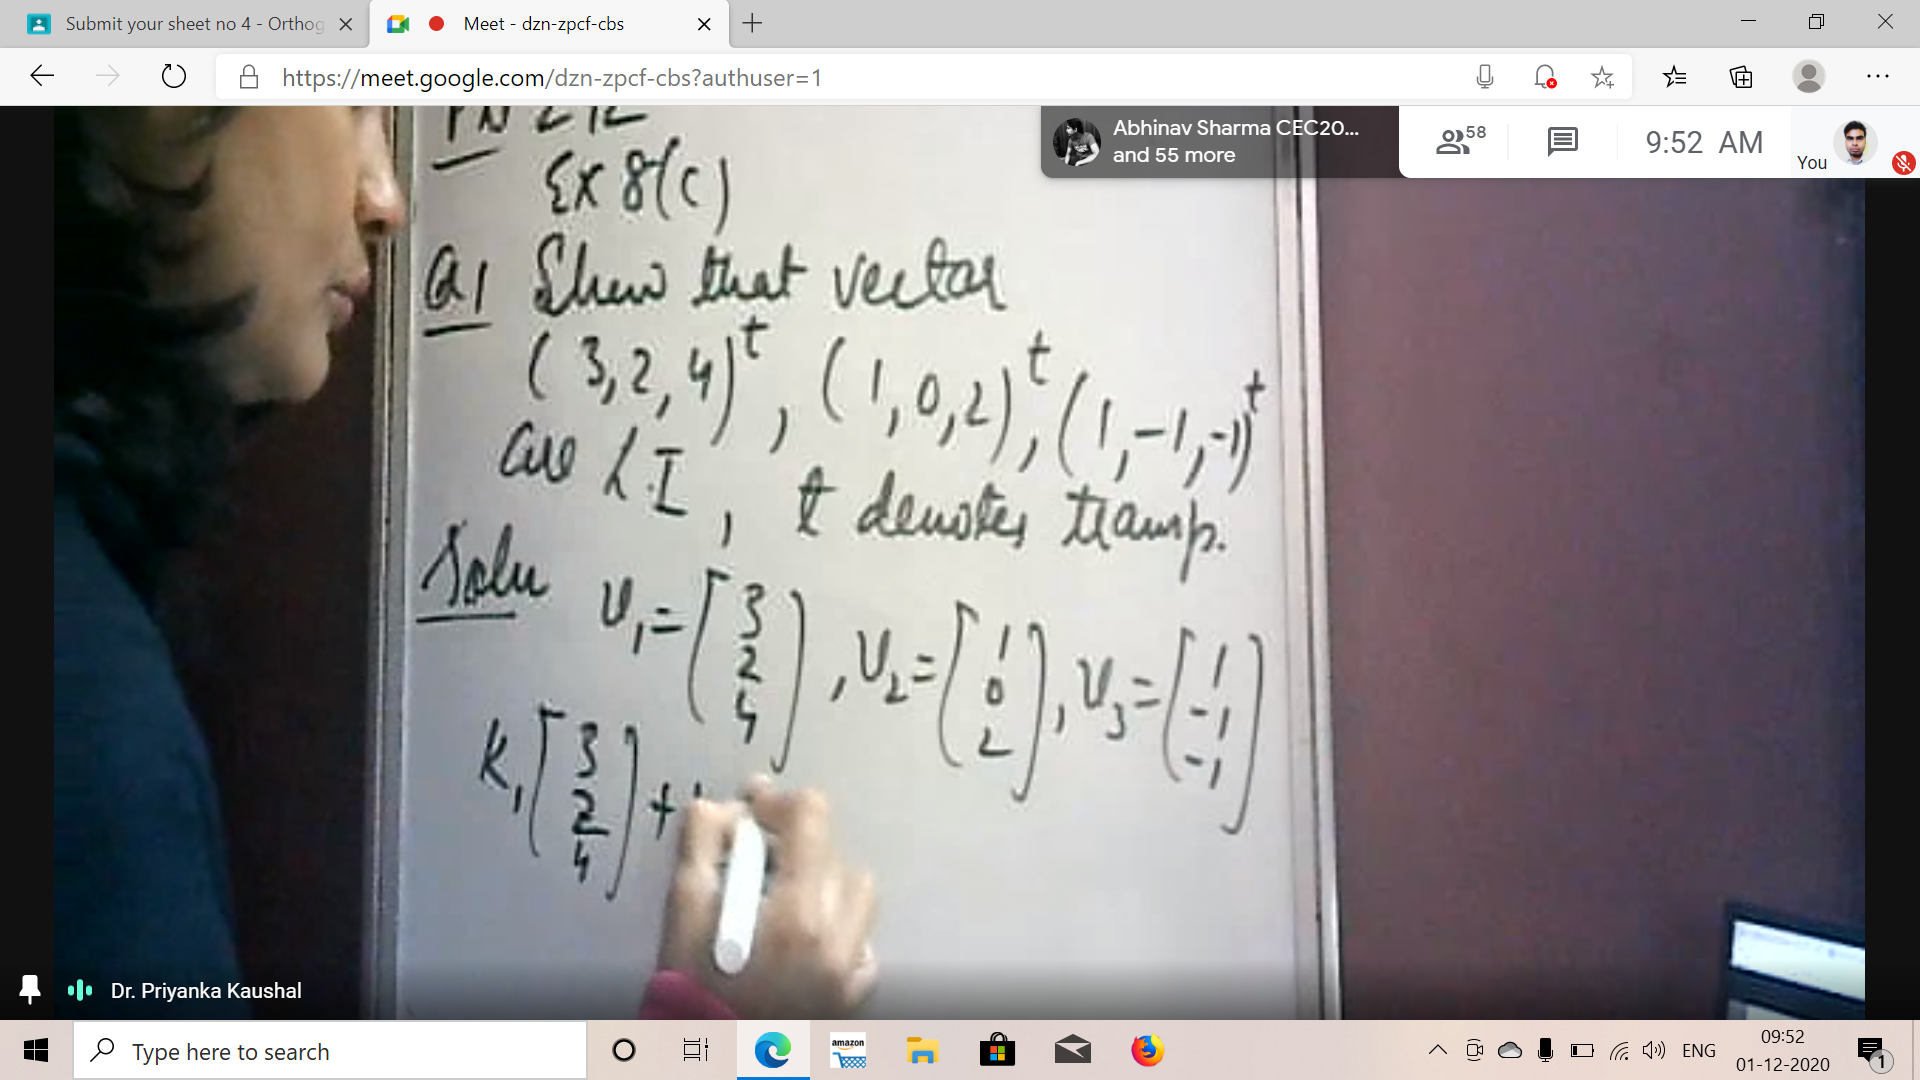 Submit your sheet no 4 - Orthog
Meet - dzn-zpcf-cbs
https://meet.google.com/dzn-zpcf-cbs?authuser=1
Abhinav Sharma CEC20...
and 55 more
58
9:52 AM
You
PN 212
Ex 8(c)
Q1 Show that vector
(3,2,4)ᵗ, (1,0,2)ᵗ, (1,-1,-1)ᵗ
are L.I, t denotes transp.
Solu v₁=[3 2 4], v₂=[1 0 2], v₃=[1 -1 -1]
K₁[3 2 4]+
Dr. Priyanka Kaushal
Type here to search
amazon
ENG
09:52
01-12-2020
1